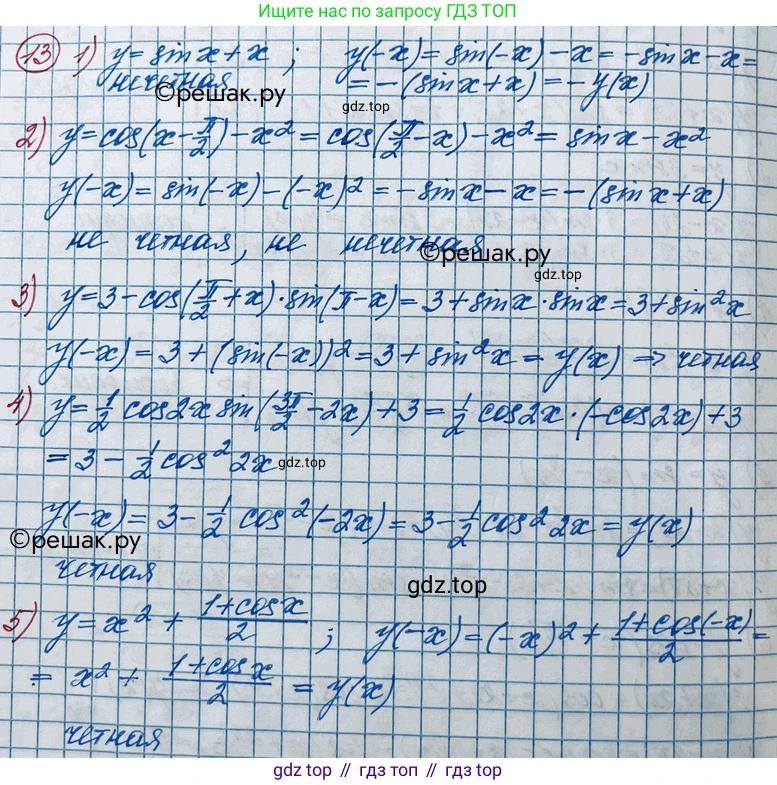 Ищите нас по запросу ГДЗ ТОП
13 1) y = sin x + x ; y(-x) = sin(-x) - x = -sin x - x =
нечетная = -(sin x + x) = -y(x)
©решак.ру gdz.top
2) y = cos(x - π/2) - x² = cos(π/2 - x) - x² = sin x - x²
y(-x) = sin(-x) - (-x)² = -sin x - x = -(sin x + x)
не четная, не нечетная
©решак.ру
gdz.top
3) y = 3 - cos(π/2 + x) · sin(π - x) = 3 + sin x · sin x = 3 + sin² x
y(-x) = 3 + (sin(-x))² = 3 + sin² x = y(x) ⇒ четная
4) y = 1/2 cos 2x sin(3π/2 - 2x) + 3 = 1/2 cos 2x · (-cos 2x) + 3
= 3 - 1/2 cos² 2x gdz.top
y(-x) = 3 - 1/2 cos² (-2x) = 3 - 1/2 cos² 2x = y(x)
©решак.ру
четная gdz.top
5) y = x² + (1 + cos x)/2 ; y(-x) = (-x)² + (1 + cos(-x))/2 =
= x² + (1 + cos x)/2 = y(x)
четная
gdz top // гдз топ // gdz.top